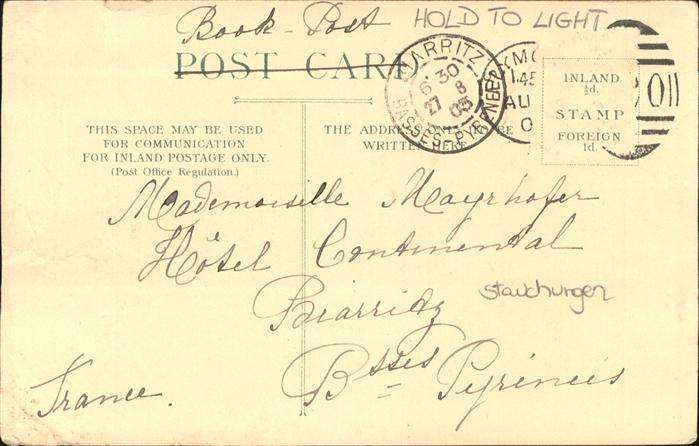 Book-Post
HOLD TO LIGHT
POST CARD
BIARRITZ
6 30
27 8
03
BASSES-PYRENEES
INLAND
½d.
STAMP
FOREIGN
1d.
THIS SPACE MAY BE USED
FOR COMMUNICATION
FOR INLAND POSTAGE ONLY.
(Post Office Regulation.)
THE ADDRESS
WRITTEN HERE
Mademoiselle Mayrhofer
Hôtel Continental
Biarritz
stauchungen
Bsses Pyrénées
France.